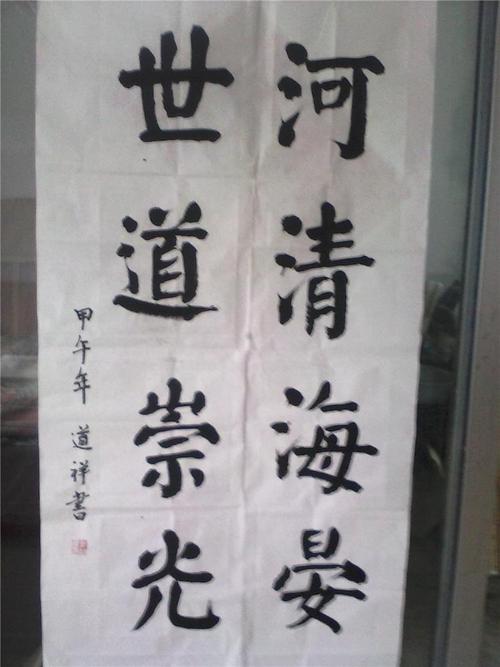 河清海晏
世道崇光
甲午年 道祥書